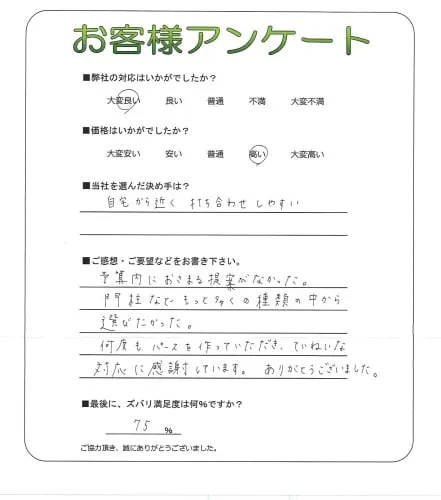 お客様アンケート
■弊社の対応はいかがでしたか？
大変良い 良い 普通 不満 大変不満
■価格はいかがでしたか？
大変安い 安い 普通 高い 大変高い
■当社を選んだ決め手は？
自宅から近く 打ち合わせしやすい
■ご感想・ご要望などをお書き下さい。
予算内におさまる提案がなかった。
門柱などもっと多くの種類の中から
選びたかった。
何度もパースを作っていただき、ていねいな
対応に感謝しています。 ありがとうございました。
■最後に、ズバリ満足度は何%ですか？
75 %
ご協力頂き、誠にありがとうございました。